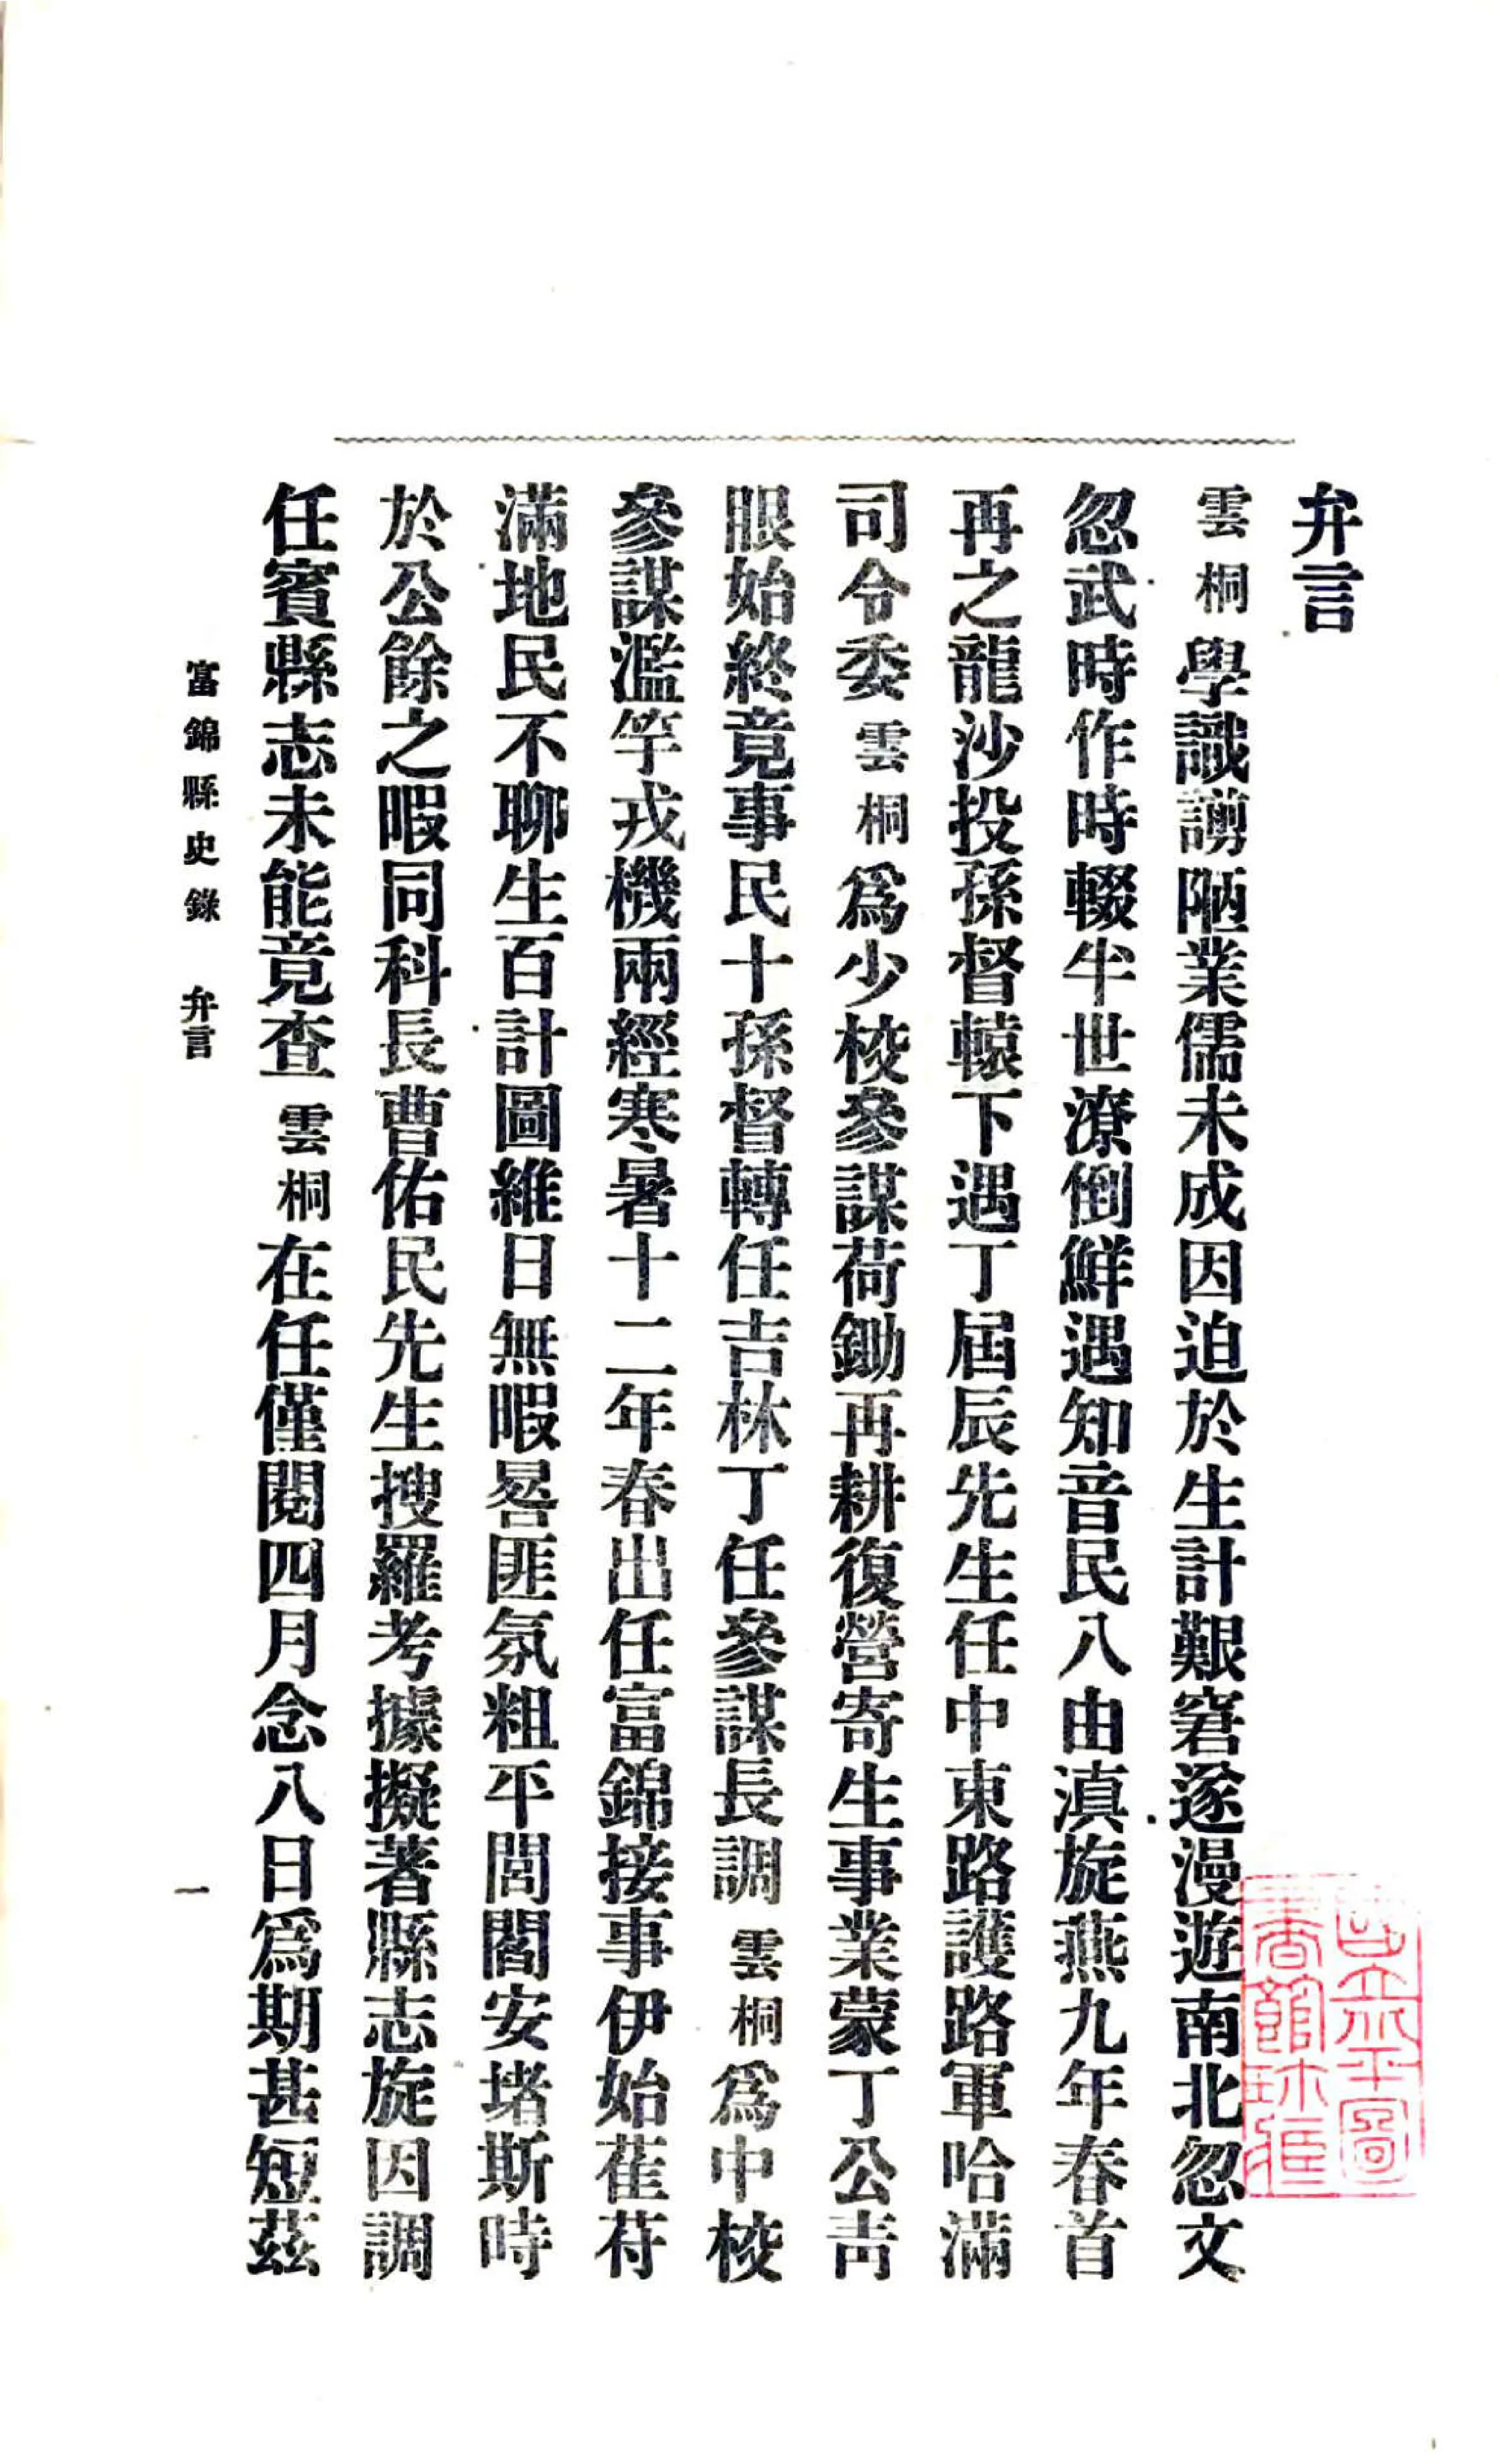 弁言
雲桐學識譾陋業儒未成因迫於生計艱窘遂漫遊南北忽文
忽武時作時輟半世潦倒鮮遇知音民八由滇旋燕九年春首
再之龍沙投孫督轅下遇丁屆辰先生任中東路護路軍哈滿
司令委雲桐爲少校參謀荷鋤再耕復營寄生事業蒙丁公靑
眼始終竟事民十孫督轉任吉林丁任參謀長調雲桐爲中校
參謀濫竽戎機兩經寒暑十二年春出任富錦接事伊始萑苻
滿地民不聊生百計圖維日無暇晷匪氛粗平閭閻安堵斯時
於公餘之暇同科長曹佑民先生搜羅考據擬著縣志旋因調
任賓縣志未能竟查雲桐在任僅閱四月念八日爲期甚短茲
富錦縣史錄 弁言 一
國立北平圖
書館珍藏